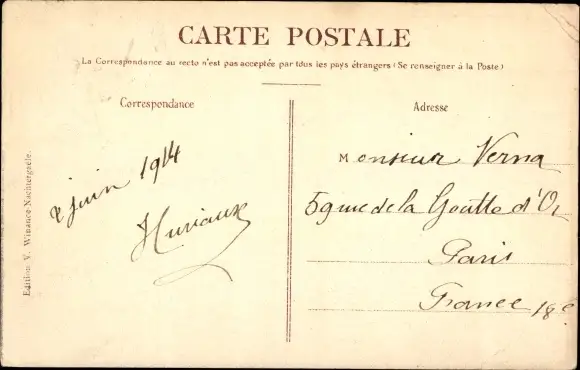 CARTE POSTALE
La Correspondance au recto n'est pas acceptée par tous les pays étrangers (Se renseigner à la Poste)
Correspondance
Adresse
Edition V. Winance-Nachtergaële.
2 juin 1914
Huriaux
Monsieur Verna
59 rue de la Goutte d'Or
Paris
France 18e